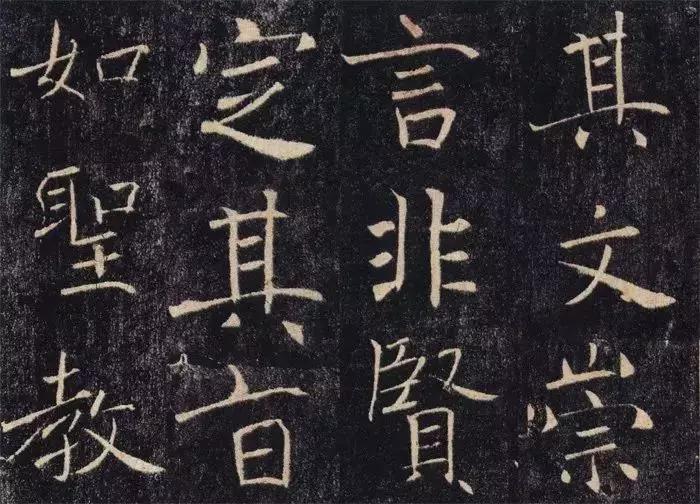 其文崇
言非賢
定其旨
如聖教